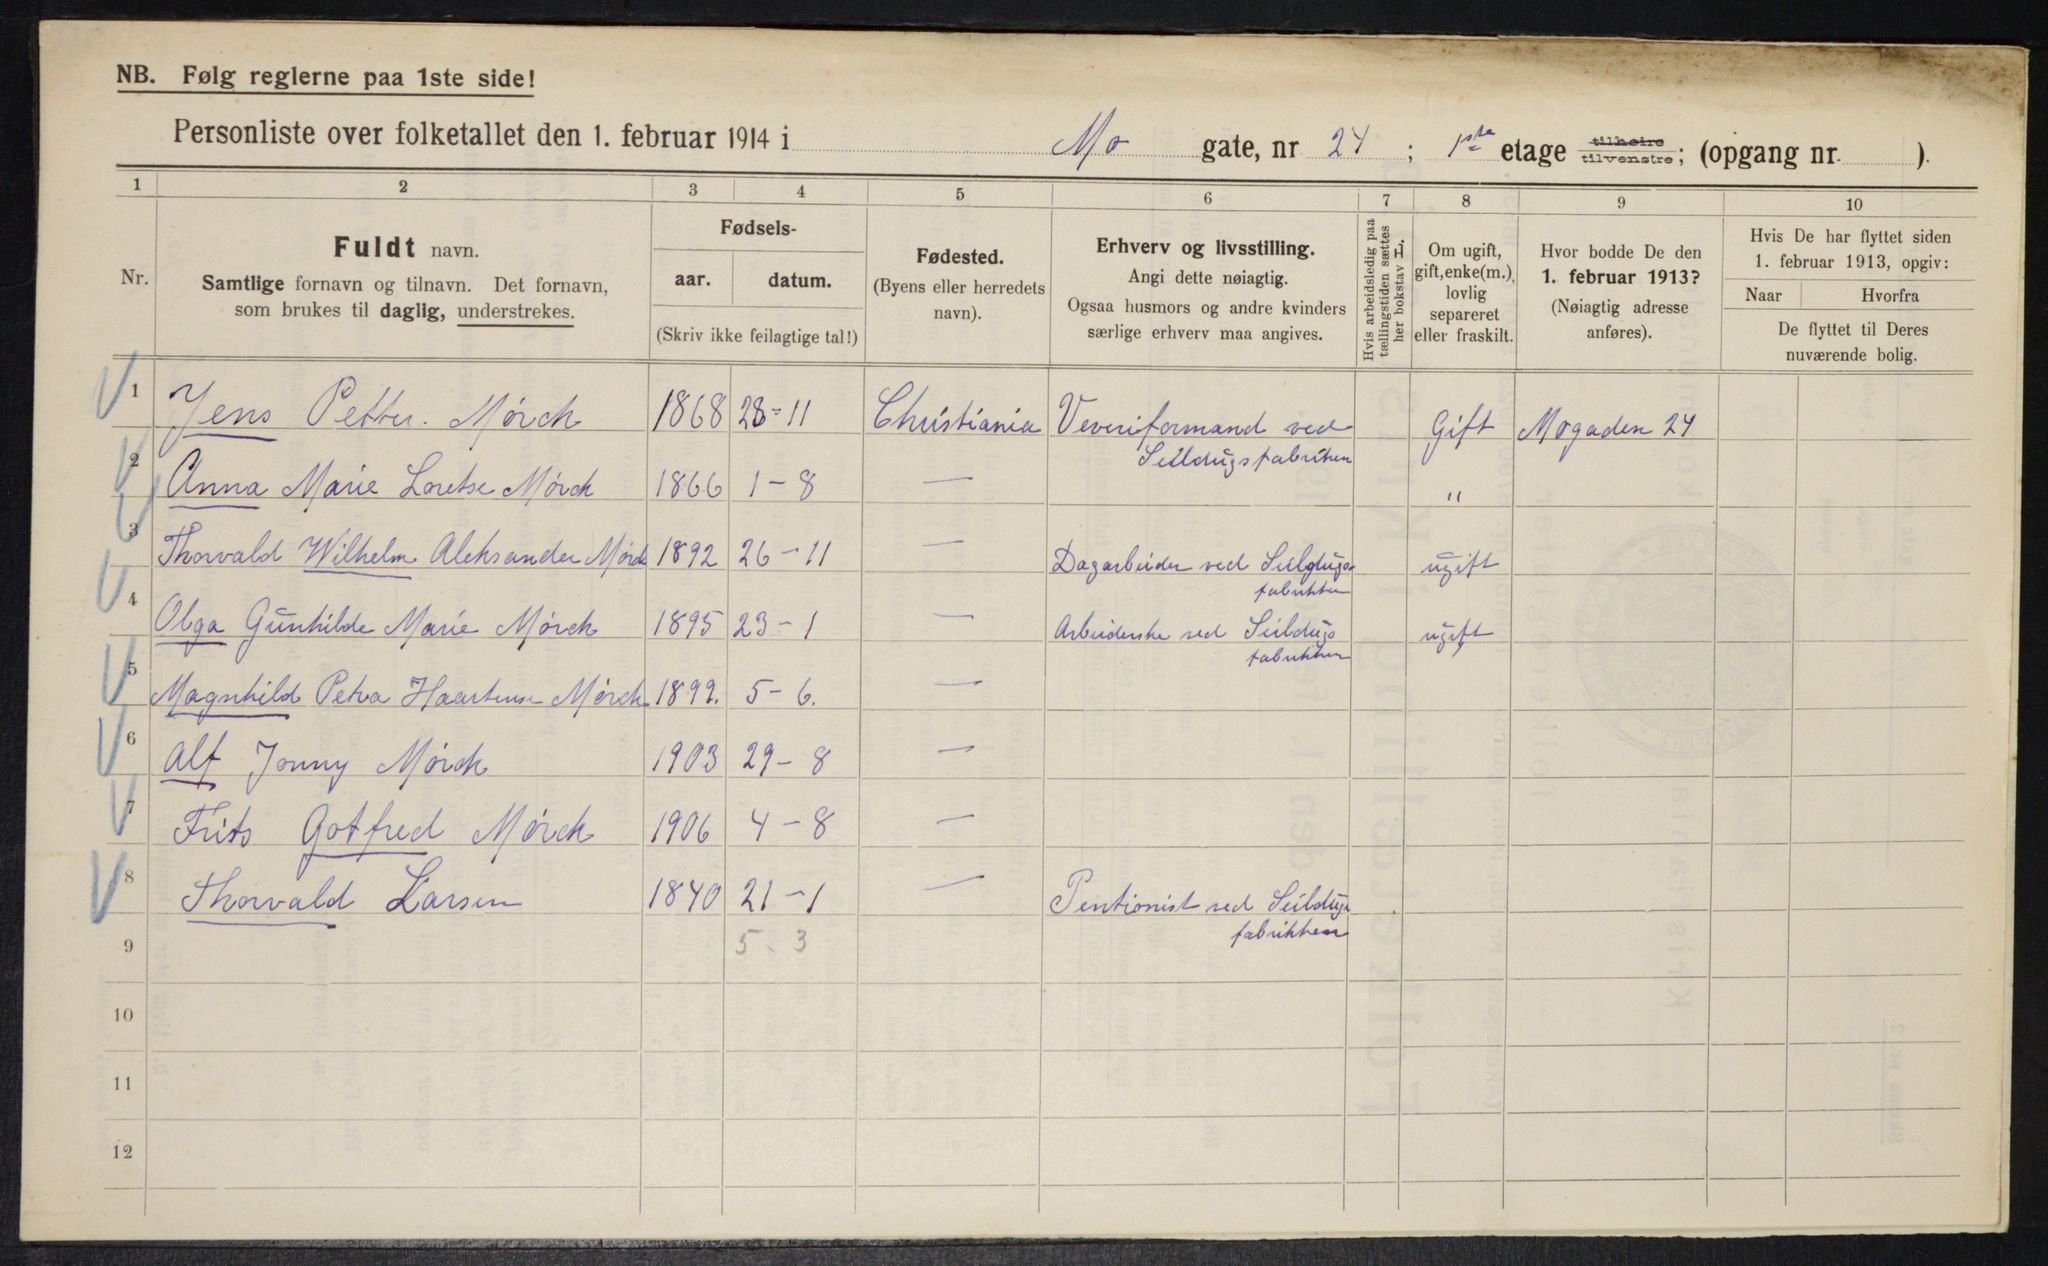 NB. Følg reglerne paa 1ste side!
Personliste over folketallet den 1. februar 1914 i Mo gate, nr 24 ; 1ste etage tilhøire tilvenstre; (opgang nr. ).
1 2 3 4 5 6 7 8 9 10
Nr.
Fuldt navn.
Samtlige fornavn og tilnavn. Det fornavn,
som brukes til daglig, understrekes.
Fødsels-
aar. datum.
(Skriv ikke feilagtige tal!)
Fødested.
(Byens eller herredets
navn).
Erhverv og livsstilling.
Angi dette nøiagtig.
Ogsaa husmors og andre kvinders
særlige erhverv maa angives.
Hvis arbeidsledig paa
tællingstiden sættes
her bokstav L.
Om ugift,
gift, enke(m.),
lovlig
separeret
eller fraskilt.
Hvor bodde De den
1. februar 1913?
(Nøiagtig adresse
anføres).
Hvis De har flyttet siden
1. februar 1913, opgiv:
Naar Hvorfra
De flyttet til Deres
nuværende bolig.
1 Jens Petter. Mörch 1868 28-11 Christiania Veveriformand ved Gift Mogaden 24
Seildugsfabriken
2 Anna Marie Loretse Mörch 1866 1-8 — "
3 Thorvald Wilhelm Aleksander Mörch 1892 26-11 — Dagarbeider ved Seildugs ugift
fabrikken
4 Olga Gunhilde Marie Mörch 1895 23-1 — Arbeiderske ved Seildugs ugift
fabrikken
5 Magnhild Petra Mörch 1899. 5-6. —
6 Alf Jonny Mörch 1903 29-8 —
7 Frits Gotfred Mörch 1906 4-8 —
8 Thorvald Larsen 1840 21-1 — Pentionist ved Seildugs
fabrikken
9 5. 3
10
11
12